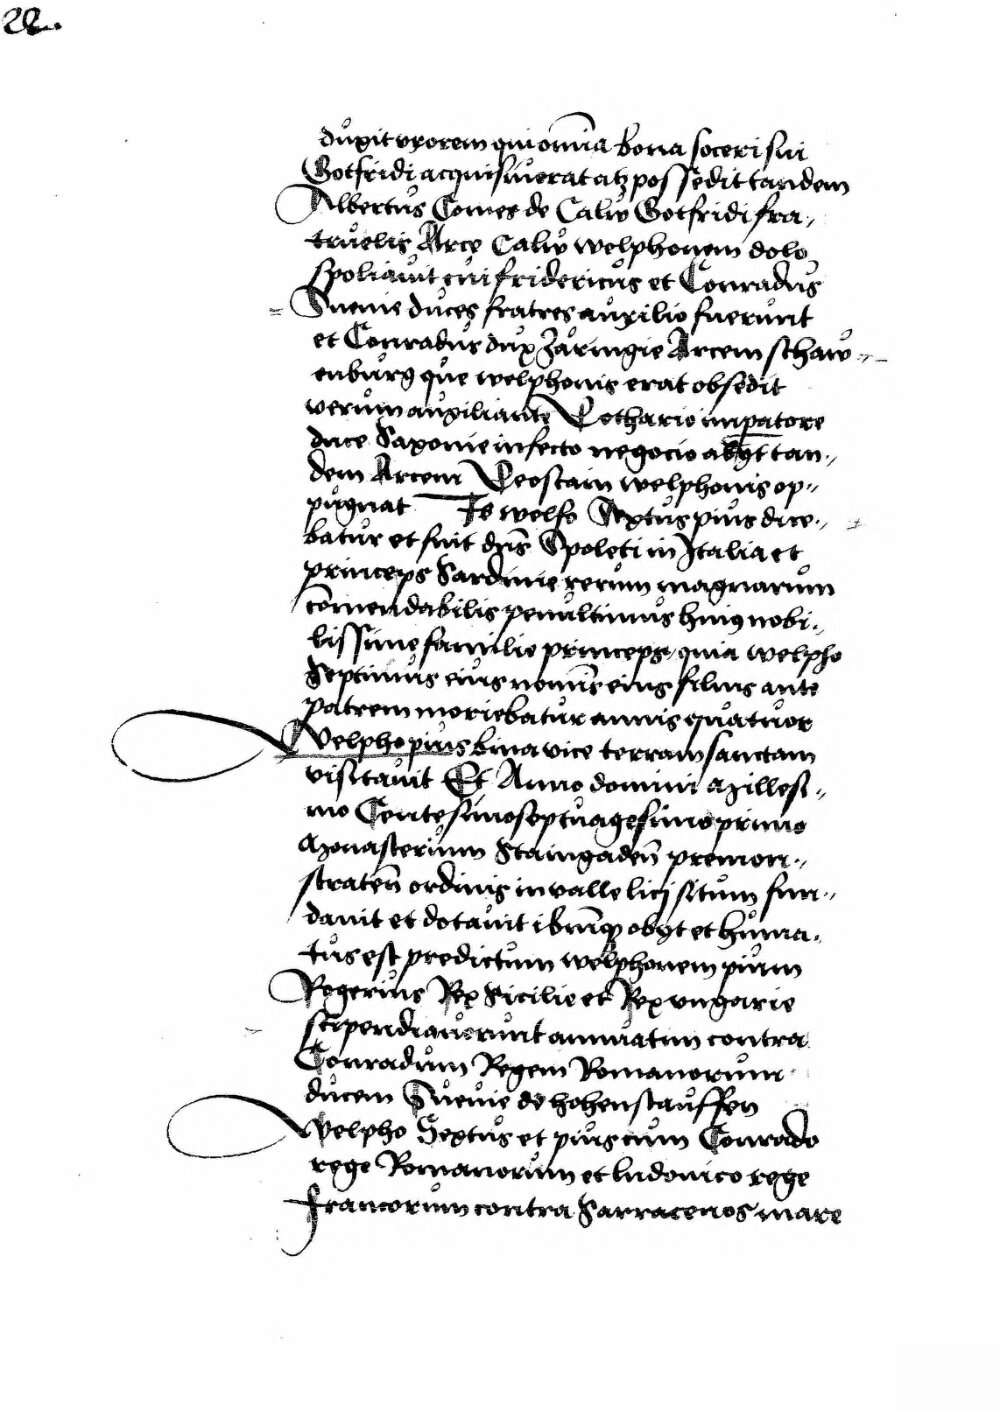 22.
důxit vxorem qui om̄ia bona soceri sui
Gotfridi acquisiuerat atqz possedit tandem
Albertůs Comes de Caliv Gotfridi fra-
trůelis Arce Caliv welphonem dolo
spoliavit cui fridericůs et Conradůs
Sueuie důces fratres aůxilio fuerůnt
et Conradůs dux Zäringie Arcem schaw-
enbůrg que welphonis erat obsedit
verům aůxiliante Lothario imp̱atore
duce Saxonie infecto negocio abijt tan-
dem Arcem welphonis op-
půgnat Is welfo Sextůs piůs dice-
batůr et fuit dn̄s Spoleti in Italia et
princeps Sardinie rerům magnarům
com̄endabilis penůltimůs huiꝰ nobi-
lissime familie princeps, quia welpho
Septimůs eiůs nomīs eiůs filius ante
patrem moriebatůr annis quatůor
Welpho piůs bina vice terram sanctam
visitavit Et Anno domini Millesi-
mo Centesimo septůagesimo primo
Monasteriům Staingadeñ premon-
strateñ ordinis in valle lici sitům fun-
davit et dotavit ibiqꝫ obijt et hůma-
tůs est predictům welphonem piům
Rogeriůs Rex Sicilie et Rex vngarie
stipendiavervnt annuatim contra
Conradům Regem Romanorům
důcem Sůeůie de hohenstaůffen
Welpho Sextůs et piůs cům Conrado
rege Romanorům et ludouico rege
francorům contra Sarracenos mare